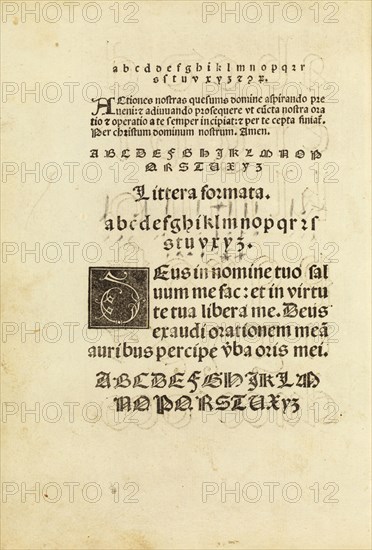 a b c d e f g h i k l m n o p q r ꝛ
ſ s t u v x y z ꝫ ꝯ ꝝ.
ACtiones noſtras queſumꝰ domine aſpirando pre
ueni: ⁊ adiuuando proſequere vt cūcta noſtra ora
tio ⁊ operatio a te ſemper incipiat: ⁊ per te cepta finiať.
Per chriſtum dominum noſtrum. Amen.
A B C D E F G H I K L M N O P
Q R S T U X Y Z
Littera formata.
a b c d e f g h i k l m n o p q r ꝛ s
ſ t u v x y ȥ.
DEus in nomine tuo ſal
uum me fac: et in virtu
te tua libera me. Deus
exaudi orationem meā
auribus percipe v̓ba oris mei.
A B C D E F G H I K L M
N O P Q R S T U X y ȥ
PHOTO 12